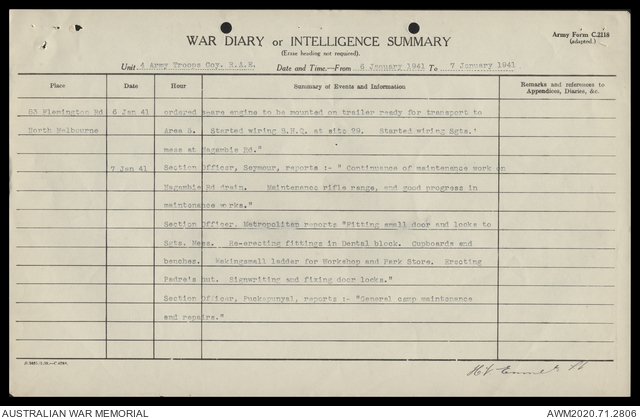 WAR DIARY or INTELLIGENCE SUMMARY
(Erase heading not required).
Army Form C.2118
(adapted.)
Unit 4 Army Troops Coy. R.A.E. Date and Time.—From 6 January 1941 To 7 January 1941.
Place Date Hour Summary of Events and Information Remarks and references to Appendices, Diaries, &c.
83 Flemington Rd 6 Jan 41 ordered spare engine to be mounted on trailer ready for transport to
North Melbourne Area 5. Started wiring B.H.Q. at site 29. Started wiring Sgts.'
mess at Nagambie Rd."
7 Jan 41 Section Officer, Seymour, reports :- " Continuance of maintenence work on
Nagambie Rd drain. Maintenance rifle range, and good progress in
maintenance works."
Section Officer, Metropolitan reports "Fitting small door and locks to
Sgts. Mess. Re-erecting fittings in Dental block. Cupboards and
benches. Makingsmall ladder for Workshop and Park Store. Erecting
Padre's hut. Signwriting and fixing door locks."
Section Officer, Puckapunyal, reports :- "General camp maintenance
and repairs."
AUSTRALIAN WAR MEMORIAL
AWM2020.71.2806